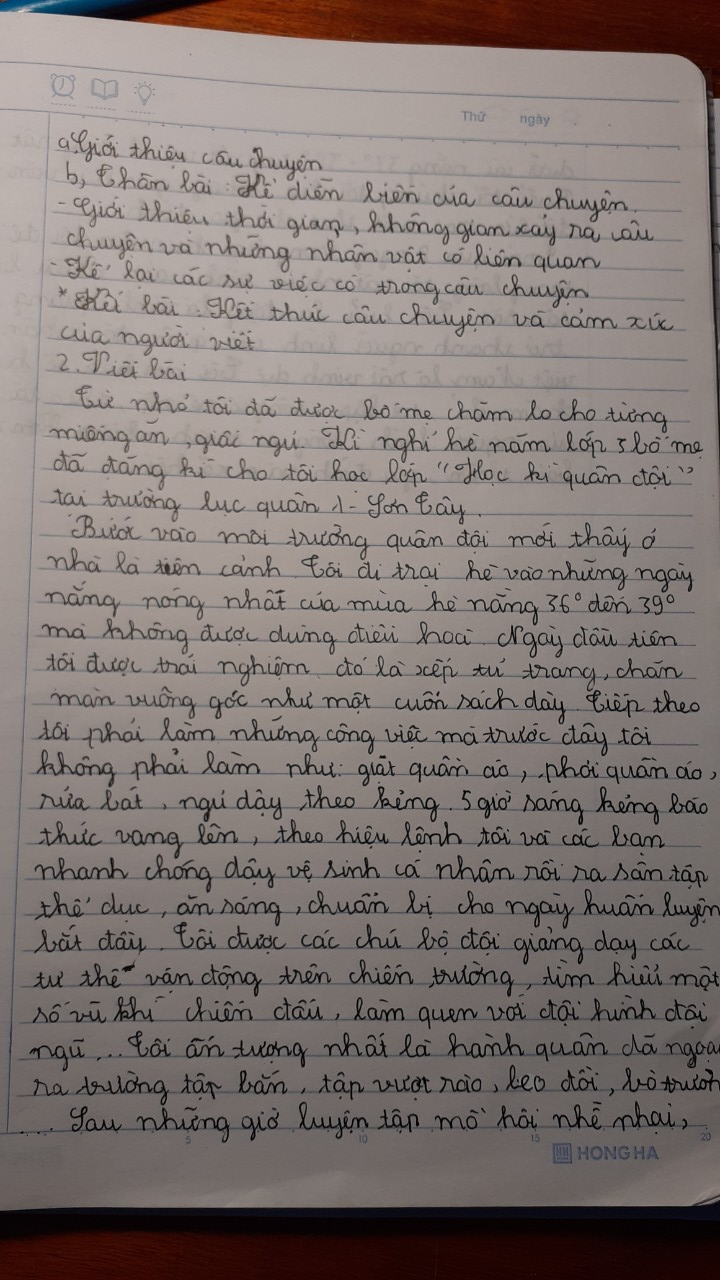 Thứ ngày
a, Giới thiệu câu chuyện
b, Thân bài: Kể diễn biến của câu chuyện.
- Giới thiệu thời gian, không gian xảy ra câu
chuyện và những nhân vật có liên quan
- Kể lại các sự việc có trong câu chuyện
* Kết bài: Kết thúc câu chuyện và cảm xúc
của người viết
2. Viết bài
Từ nhỏ tôi đã được bố mẹ chăm lo cho từng
miếng ăn, giấc ngủ. Kì nghỉ hè năm lớp 5 bố mẹ
đã đăng kí cho tôi học lớp "Học kì quân đội"
tại trường lục quân 1 - Sơn Tây.
Bước vào môi trường quân đội mới thấy ở
nhà là tiên cảnh. Tôi đi trại hè vào những ngày
nắng nóng nhất của mùa hè nắng 36° đến 39°
mà không được dùng điều hoà. Ngày đầu tiên
tôi được trải nghiệm đó là xếp tư trang, chăn
màn vuông góc như một cuốn sách dày. Tiếp theo
tôi phải làm những công việc mà trước đây tôi
không phải làm như: giặt quần áo, phơi quần áo,
rửa bát, ngủ dậy theo kẻng. 5 giờ sáng kẻng báo
thức vang lên, theo hiệu lệnh tôi và các bạn
nhanh chóng dậy vệ sinh cá nhân rồi ra sân tập
thể dục, ăn sáng, chuẩn bị cho ngày huấn luyện
bắt đầu. Tôi được các chú bộ đội giảng dạy các
tư thế vận động trên chiến trường, tìm hiểu một
số vũ khí chiến đấu, làm quen với đội hình đội
ngũ... Tôi ấn tượng nhất là hành quân dã ngoại
ra trường tập bắn, tập vượt rào, leo đồi, bò trườn
.... Sau những giờ luyện tập mồ hôi nhễ nhại,
5 10 15 20
HONG HA